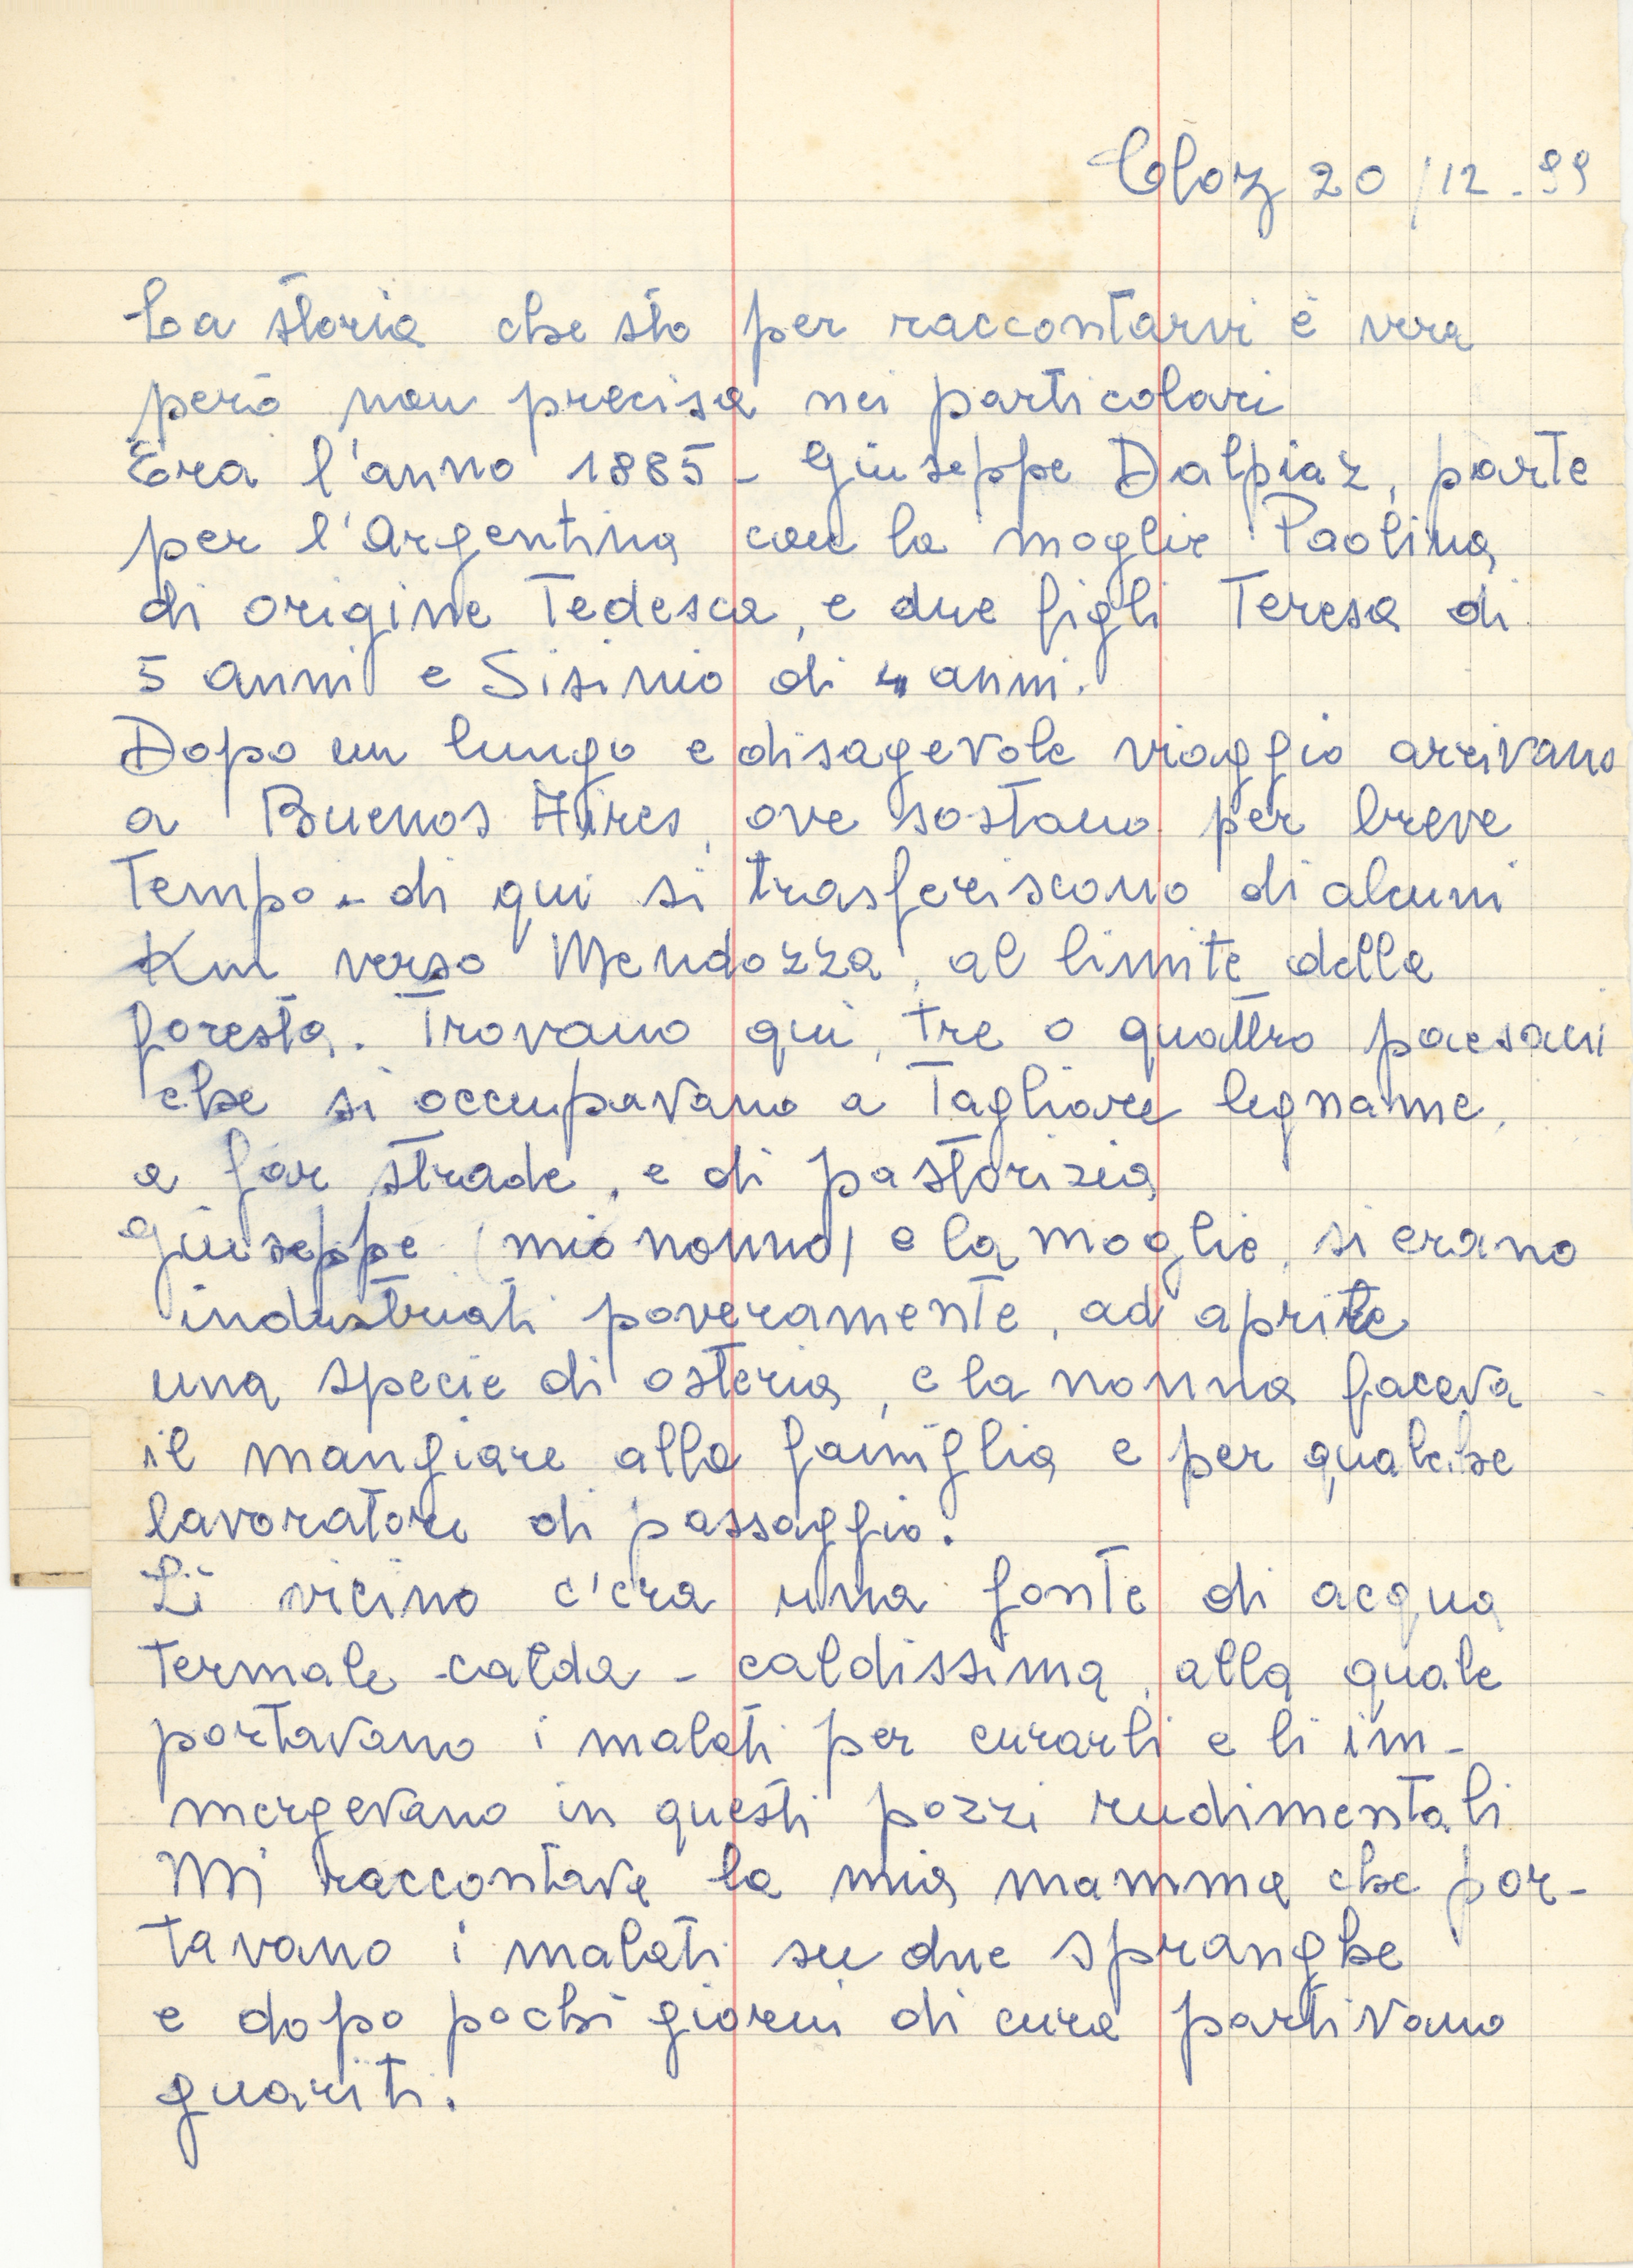 Cloz 20/12.99
La storia che sto per raccontarvi è vera
però non precisa nei particolari
Era l'anno 1885 - Giuseppe Dalpiaz, parte
per l'Argentina con la moglie Paolina
di origine Tedesca, e due figli Teresa di
5 anni e Sisinio di 4 anni.
Dopo un lungo e disagevole viaggio arrivano
a Buenos Aires, ove sostano per breve
Tempo - di qui si trasferiscono di alcuni
Km verso Mendozza, al limite della
foresta. Trovano qui, tre o quattro paesani
che si occupavano a Tagliare legname,
a far strade, e di pastorizia
Giuseppe (mio nonno) e la moglie, si erano
industriati poveramente, ad aprire
una specie di osteria, e la nonna faceva
il mangiare alla famiglia e per qualche
lavoratore di passaggio.
Lì vicino c'era una fonte di acqua
Termale calda - caldissima, alla quale
portavano i malati per curarli e li im-
mergevano in questi pozzi rudimentali
Mi raccontava la mia mamma che por-
tavano i malati su due spranghe
e dopo pochi giorni di cura partivano
guariti.